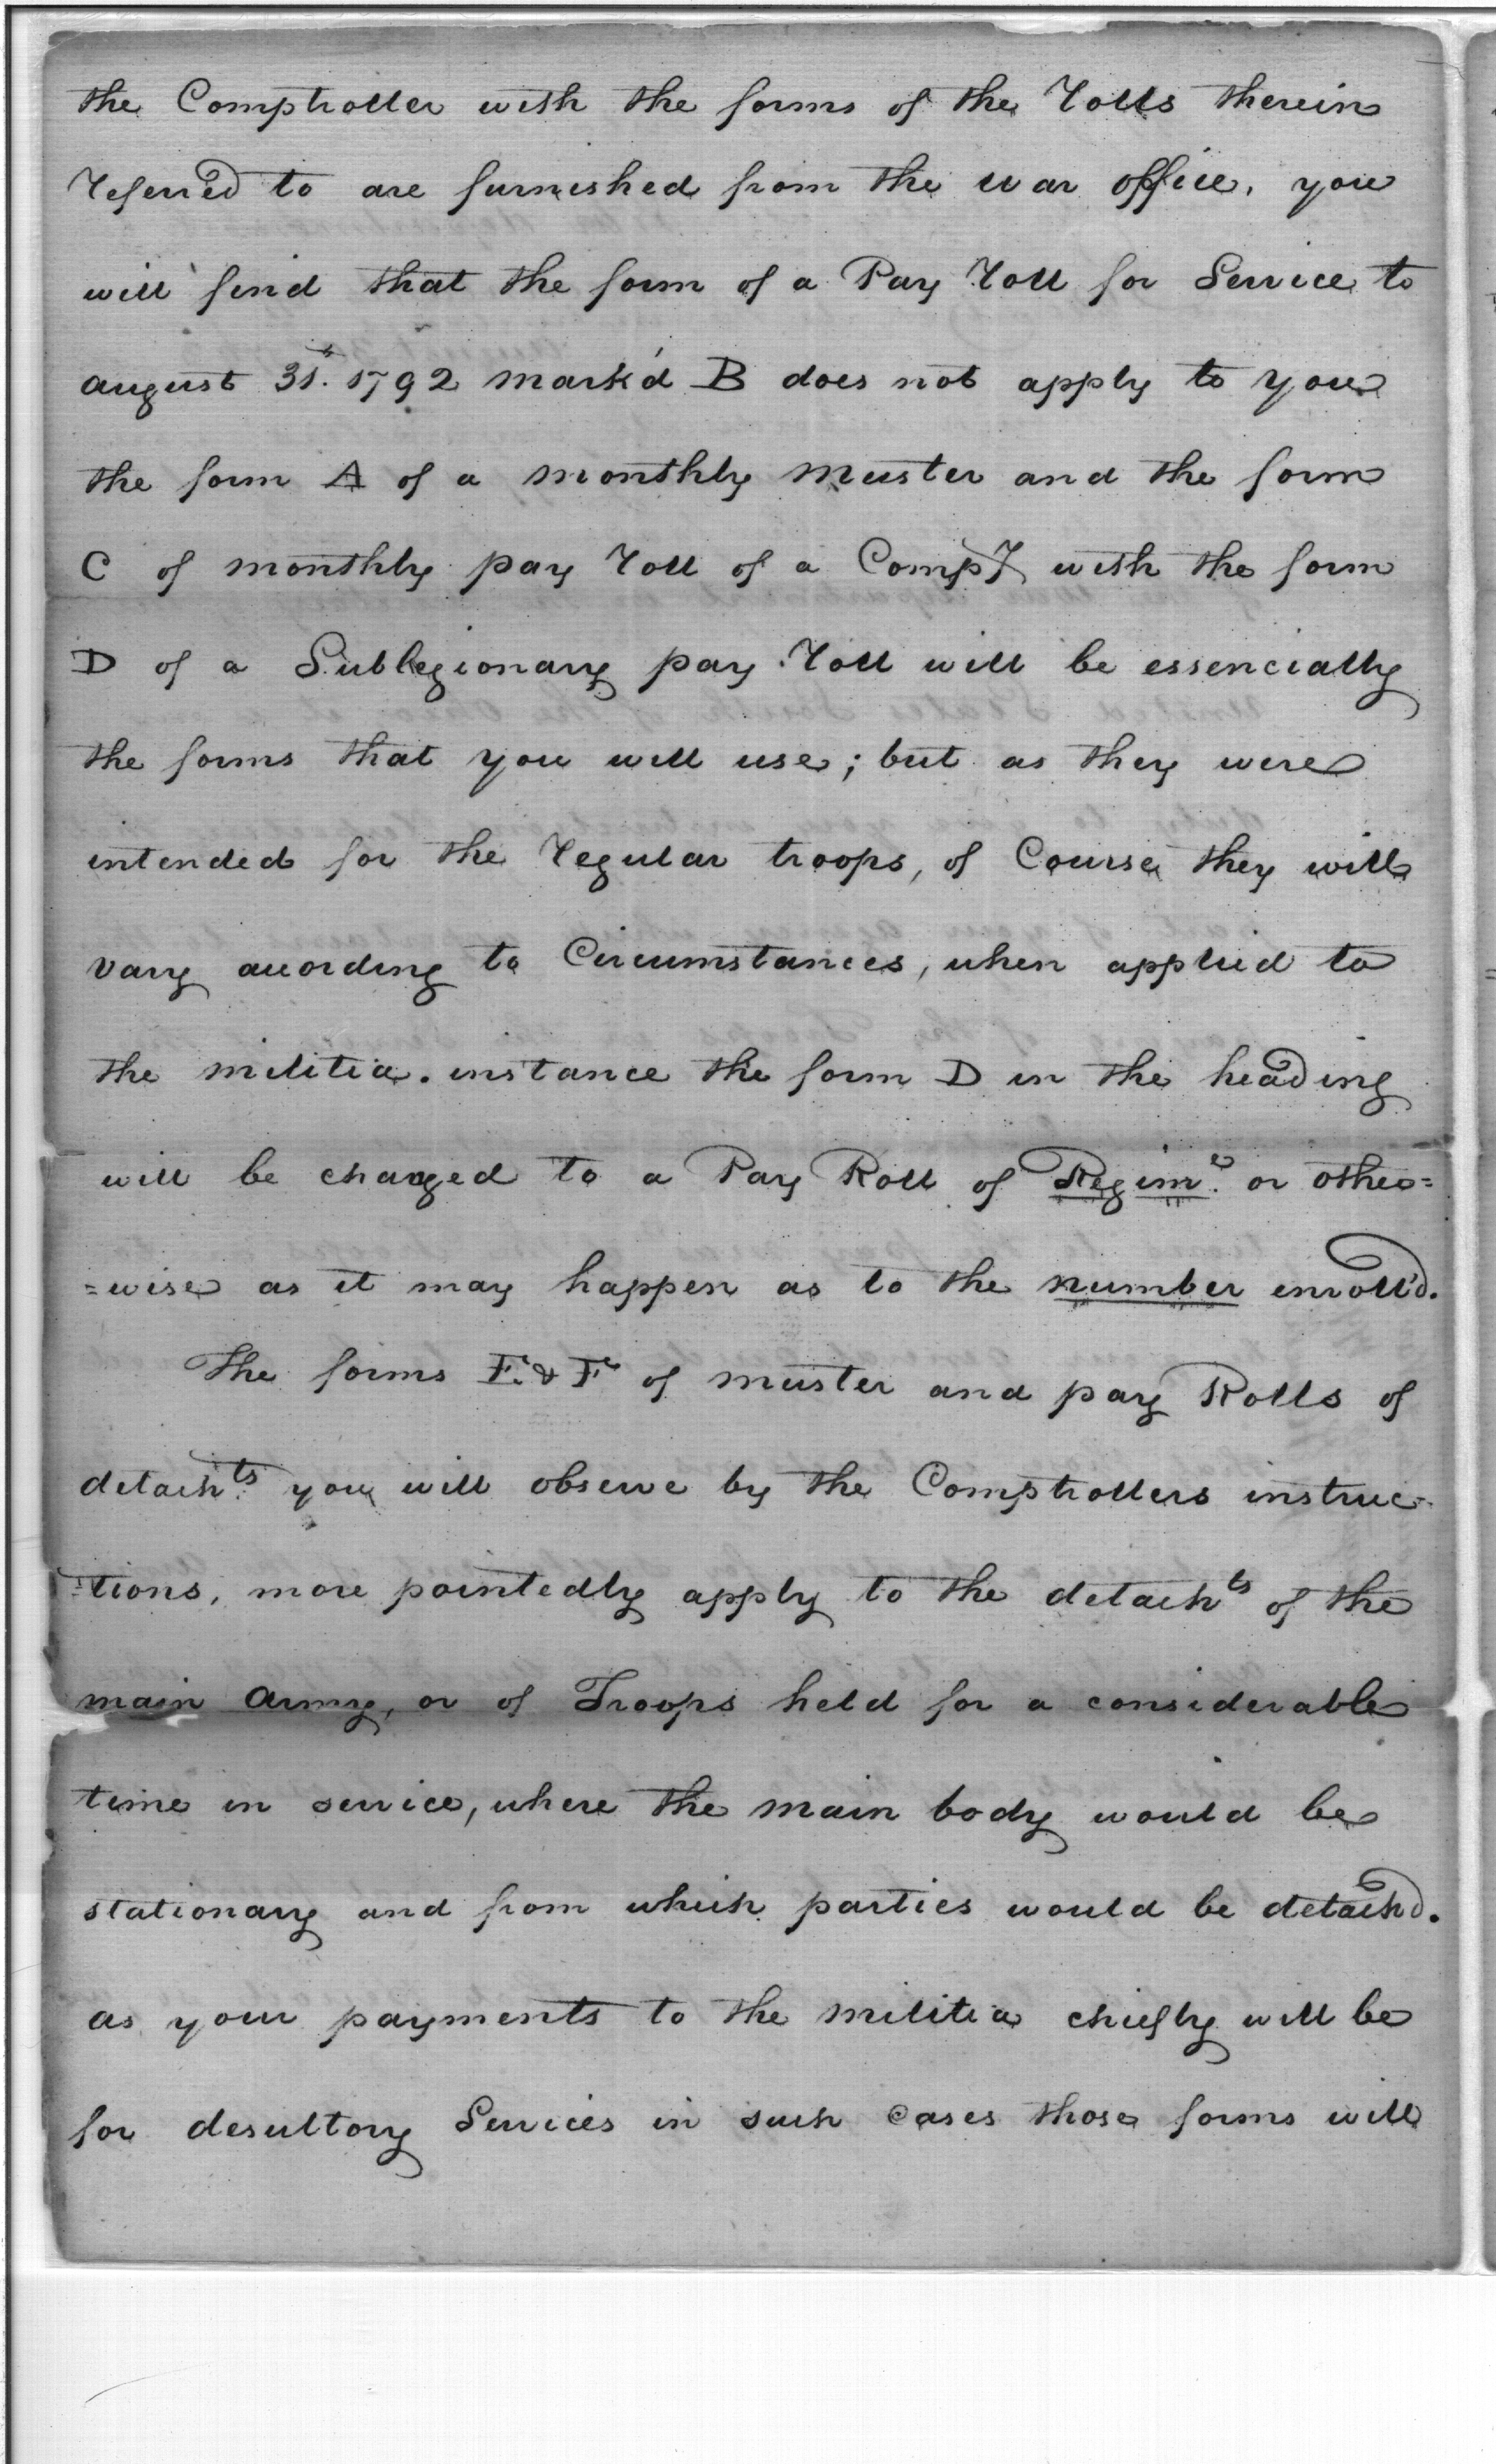 the Comptroller with the forms of the rolls therein
referred to are furnished from the war office, you
will find that the form of a Pay roll for Service to
august 31st. 1792 mark'd B does not apply to you
the form A of a monthly muster and the form
C of monthly pay roll of a Compy with the form
D of a Sublegionary pay roll will be essencially
the forms that you will use; but as they were
intended for the regular troops, of Course they will
vary acording to Circumstances, when applied to
the militia. instance the form D in the heading
will be changed to a Pay Roll of Regimt. or other=
=wise as it may happen as to the number enroll'd.
The forms E. & F of muster and pay Rolls of
detachts. you will observe by the Comptrollers instruc-
=tions, more pointedly apply to the detachts of the
main Army, or of Troops held for a considerable
time in service, where the main body would be
stationary and from which parties would be detach'd.
as your payments to the militia chiefly will be
for desultory Services in such cases those forms will